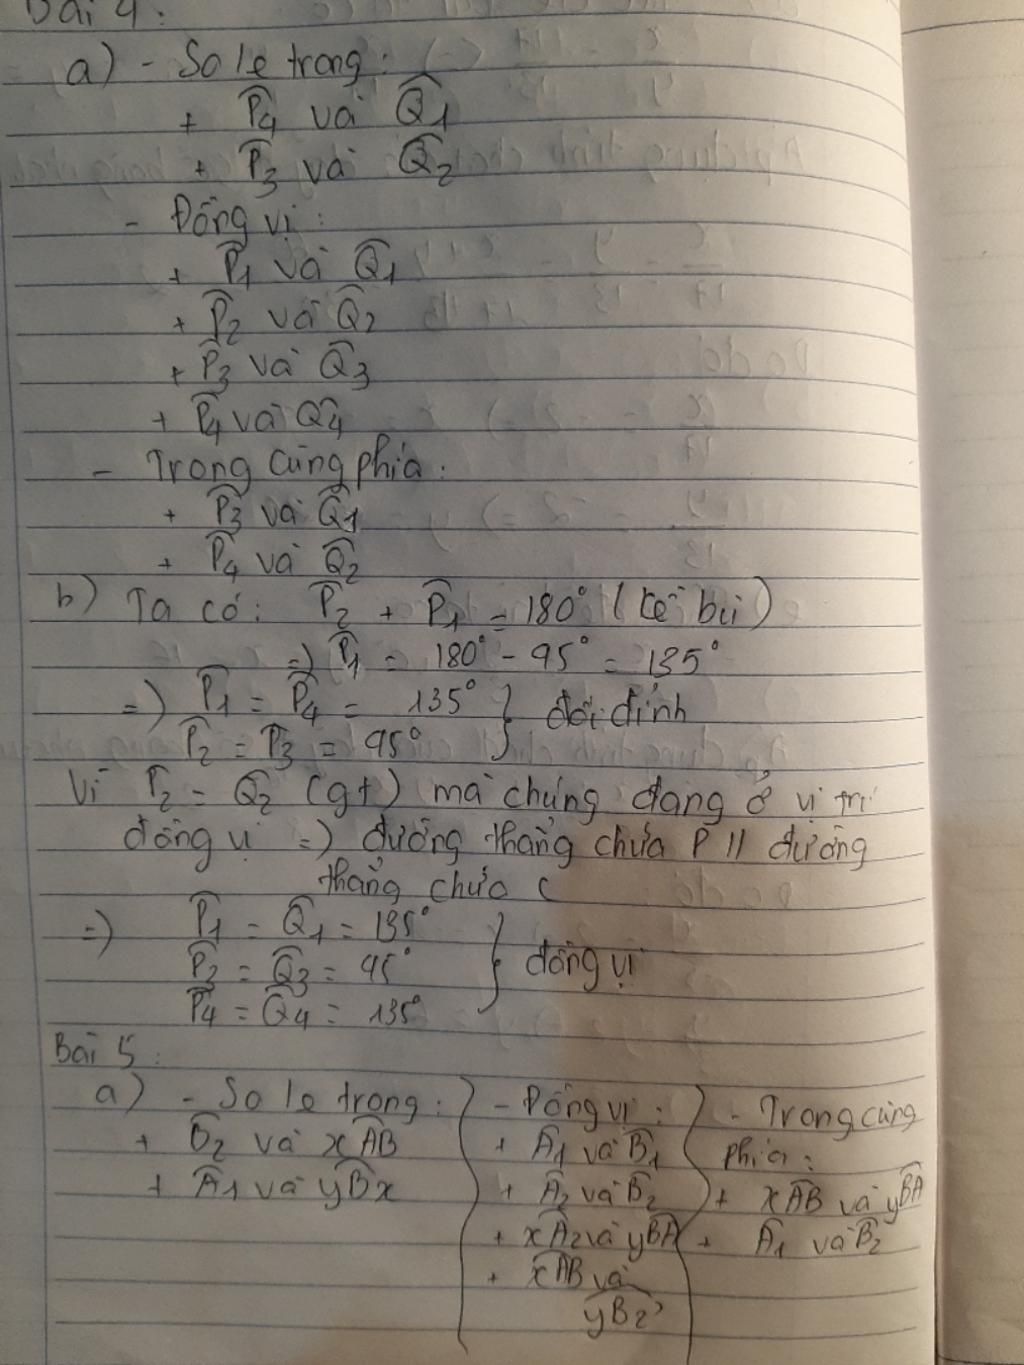 Bài 4:
a) - So le trong:
+ P̂4 và Q̂1
+ P̂3 và Q̂2
- Đồng vị:
+ P̂1 và Q̂1
+ P̂2 và Q̂2
+ P̂3 và Q̂3
+ P̂4 và Q̂4
- Trong cùng phía:
+ P̂3 và Q̂1
+ P̂4 và Q̂2
b) Ta có: P̂2 + P̂1 = 180° (kề bù)
=) P̂1 = 180° - 95° = 135°
=) P̂1 = P̂4 = 135° } đối đỉnh
P̂2 = P̂3 = 95°
Vì P̂2 = Q̂2 (gt) mà chúng đang ở vị trí
đồng vị =) đường thẳng chứa P // đường
thẳng chứa
=) P̂1 = Q̂1 = 135°
P̂2 = Q̂3 = 95° } đồng vị
P̂4 = Q̂4 = 135°
Bài 5:
a) - So le trong:
+ B̂2 và xÂB
+ Â1 và yB̂x
- Đồng vị:
+ Â1 và B̂1
+ Â2 và B̂2
+ xÂ2 và yB̂A
+ xÂB và
yB̂2
- Trong cùng
phía:
+ xÂB và yB̂A
+ Â1 và B̂2